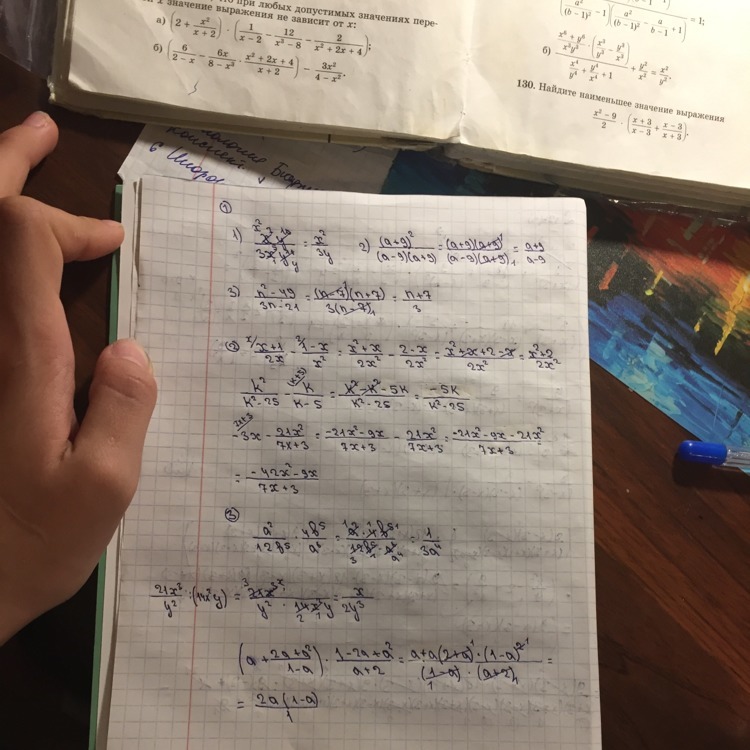 что при любых допустимых значениях пере-
х значение выражения не зависит от x:
а) (2 + x²/(x + 2)) · (1/(x − 2) − 12/(x³ − 8) − 2/(x² + 2x + 4));
б) (6/(2 − x) − 6x/(8 − x³) · (x² + 2x + 4)/(x + 2)) − 3x²/(4 − x²).
= 1;
б) + y²/x² = x²/y².
130. Найдите наименьшее значение выражения
(x² − 9)/2 · ((x + 3)/(x − 3) + (x − 3)/(x + 3)).
①
1) = x²/3y 2) (a+9)²/((a-9)(a+9)) = (a+9)(a+9)/((a-9)(a+9)) = (a+9)/(a-9)
3) (n²-49)/(3n-21) = (n-7)(n+7)/(3(n-7)) = (n+7)/3
② (x+1)/2x - (1-x)/x² = (x²+x)/2x² - (2-x)/2x² = (x²+x+2-x)/2x² = (x²+2)/2x²
k²/(k²-25) - k/(k-5) = (k²-k²-5k)/(k²-25) = -5k/(k²-25)
-3x - 21x²/(7x+3) = (-21x²-9x)/(7x+3) - 21x²/(7x+3) = (-21x²-9x-21x²)/(7x+3)
= (-42x²-9x)/(7x+3)
③
a²/12b⁵ · 4b⁵/a⁶ = = 1/3a⁴
21x³/y² : (14x²y) = 21x³/(y² · 14x²y) = x/2y³
(a + (2a+a²)/(1-a)) · (1-2a+a²)/(a+2) = (a+a(2+a) · (1-a)²)/((1-a) · (a+2)) =
= 2a(1-a)/1